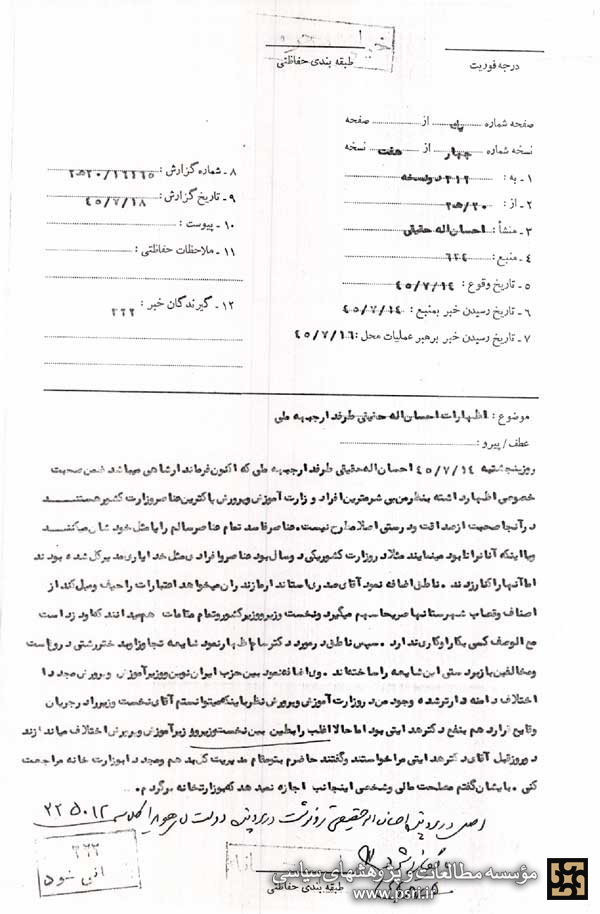 طبقه بندی حفاظتی
درجه فوریت
صفحه شماره یک از صفحه
نسخه شماره چهار از هفت نسخه
۱ـ به : ۳۱۲ دونسخه
۲ـ از : ۲۰/ﻫ ۲
۳ـ منشأ : احسان اله حقیقی
۴ـ منبع : ۶۲۴
۵ـ تاریخ وقوع : ۴۵/۷/۱۴
۶ـ تاریخ رسیدن خبر بمنبع : ۴۵/۷/۱۴
۷ـ تاریخ رسیدن خبر برهبر عملیات محل : ۴۵/۷/۱۶
۸ـ شماره گزارش :
۹ـ تاریخ گزارش : ۴۵/۷/۱۸
۱۰ـ پیوست :
۱۱ـ ملاحظات حفاظتی :
۱۲ـ گیرندگان خبر :
موضوع : اظهارات احسان اله حقیقی طرفدار جبهه ملی
عطف / پیرو :
روز پنجشنبه ۴۵/۷/۱۴ احسان اله حقیقی طرفدار جبهه ملی که اکنون فرماندار شاهی میباشد ضمن صحبت
خصوصی اظهار داشته بنظر من بی شرمترین افراد وزارت آموزش و پرورش پاکترین عناصر وزارت کشور هستند
در آنجا صحبت از صداقت و درستی اصلا مطرح نیست . عناصر فاسد تمام عناصر سالم را یا مثل خودشان میکنند
ویا اینکه آنانرا نابود مینمایند مثلا در وزارت کشور یکی دو سال بود عناصر و افرادی مثل خدایاری مدیر کل شده بودند
اما آنها را کنار زدند . ناطق اضافه نمود آقای صدری استاندار مازندران میخواهد اعتبارات را حیف و میل کند از
اصناف و قصاب شهرستانها صریحا سهم میگیرد و نخست وزیر و وزیر کشور و تمام مقامات هم میدانند که او دزد است
مع الوصف کسی بکار او کاری ندارد . سپس ناطق در مورد دکتر سام اظهار نمود شایعه تجاوز او بدختر رشتی دروغ است
و مخالفین با زبردستی این شایعه را ساخته اند . وی اضافه نمود بین حزب ایران نوین و وزیر آموزش و پرورش مجددا
اختلاف دامنه دارتر شده وجود من در وزارت آموزش و پرورش نظر باینکه میتوانستم آقای نخست وزیر را در جریان
وقایع قرار دهم بنفع دکتر هدایتی بود اما حالا اغلب رابطین بین نخست وزیر و وزیر آموزش و پرورش اختلاف میاندازند
دو روز قبل آقای دکتر هدایتی مرا خواستند و گفتند حاضرم بتو مقام مدیریت کل بدهم و مجددا بوزارت خانه مراجعت
کنی . بایشان گفتم مصلحت مالی و شخصی اینجانب اجازه نمیدهد که بوزارتخانه برگردم .
اصل در پرونده احسان اله حقیقی
طبقه بندی حفاظتی
مؤسسه مطالعات و پژوهشهای سیاسی
www.psri.ir